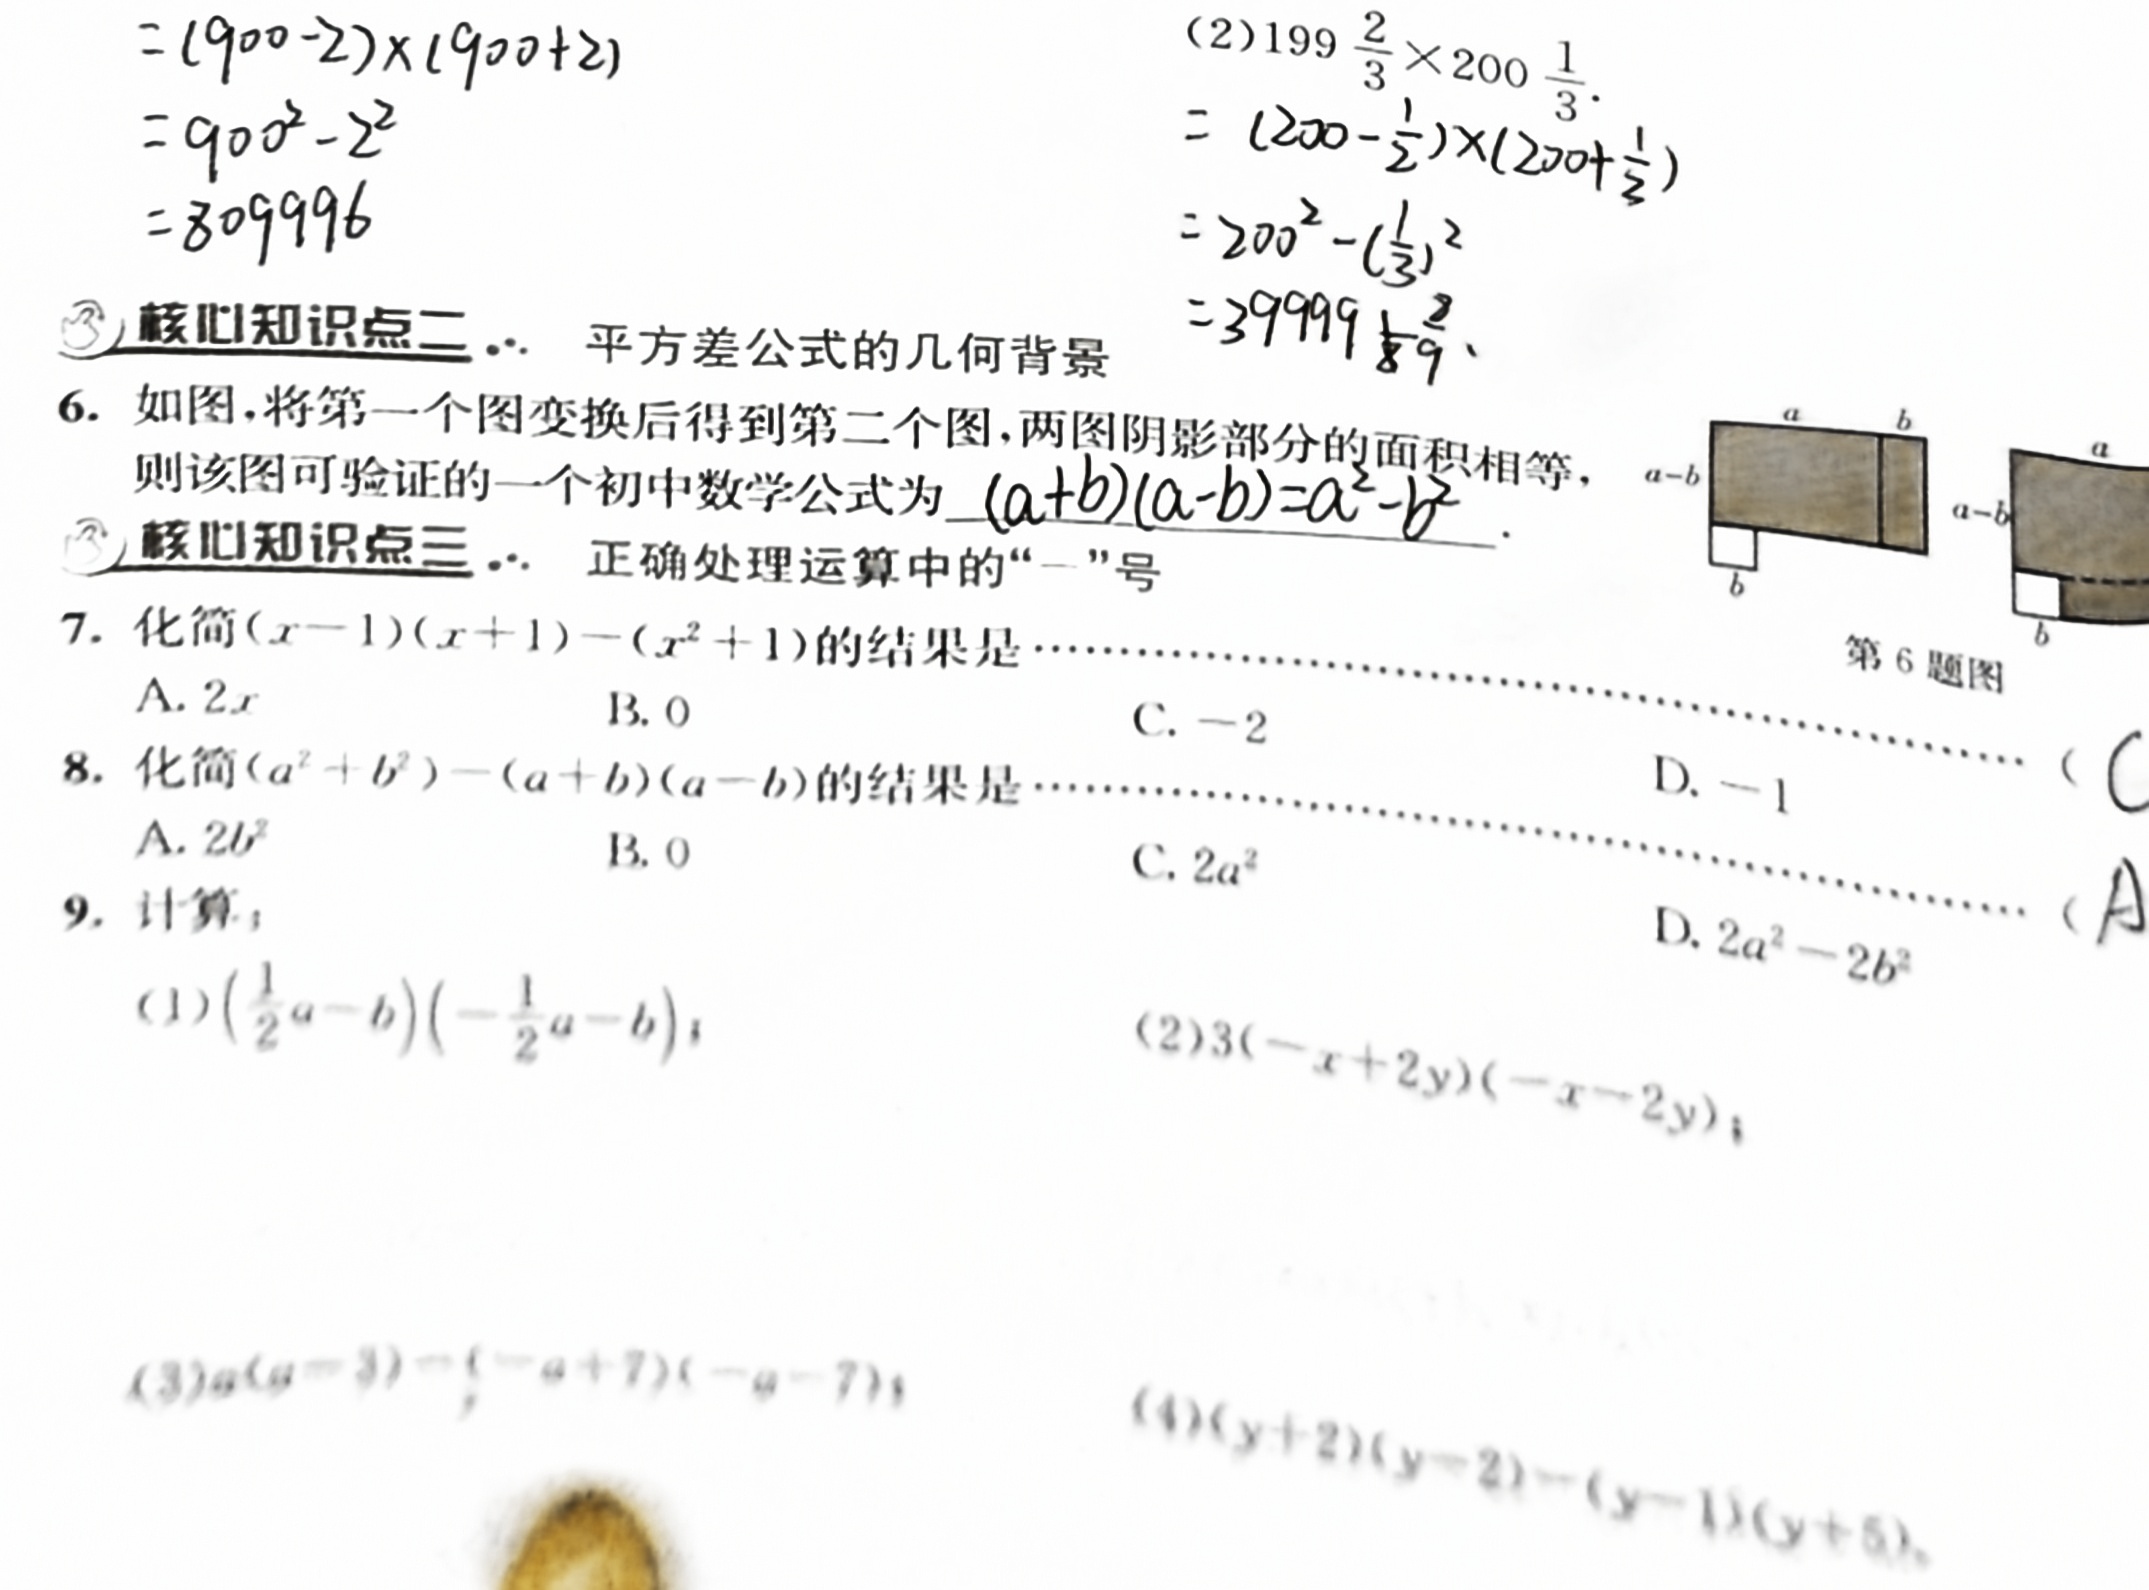 =(900-2)×(900+2)
=900²-2²
=809996
(2)199 2/3×200 1/3.
= (200-1/2)×(200+1/3)
=200²-(1/3)²
=39999 8/9.
核心知识点二 平方差公式的几何背景
6. 如图,将第一个图变换后得到第二个图,两图阴影部分的面积相等,
则该图可验证的一个初中数学公式为 (a+b)(a-b)=a²-b² .
a b
a-b
b
a
a-b
b
第6题图
核心知识点三 正确处理运算中的“-”号
7. 化简(x-1)(x+1)-(x²+1)的结果是………( C
A. 2x B. 0 C. -2 D. -1
8. 化简(a²+b²)-(a+b)(a-b)的结果是………( A
A. 2b² B. 0 C. 2a² D. 2a²-2b²
9. 计算:
(1)(1/2a-b)(-1/2a-b); (2)3(-x+2y)(-x-2y);
(3)a(a-3)-(-a+7)(-a-7); (4)(y+2)(y-2)-(y-1)(y+5).